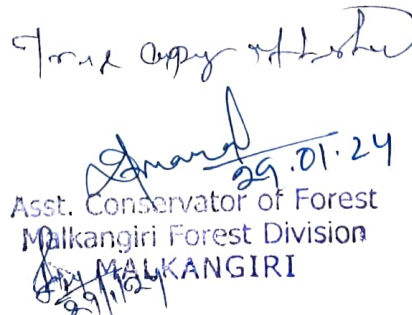 True copy attested
Anand
29.01.24
Asst. Conservator of Forest
Malkangiri Forest Division
MALKANGIRI
29/1/24